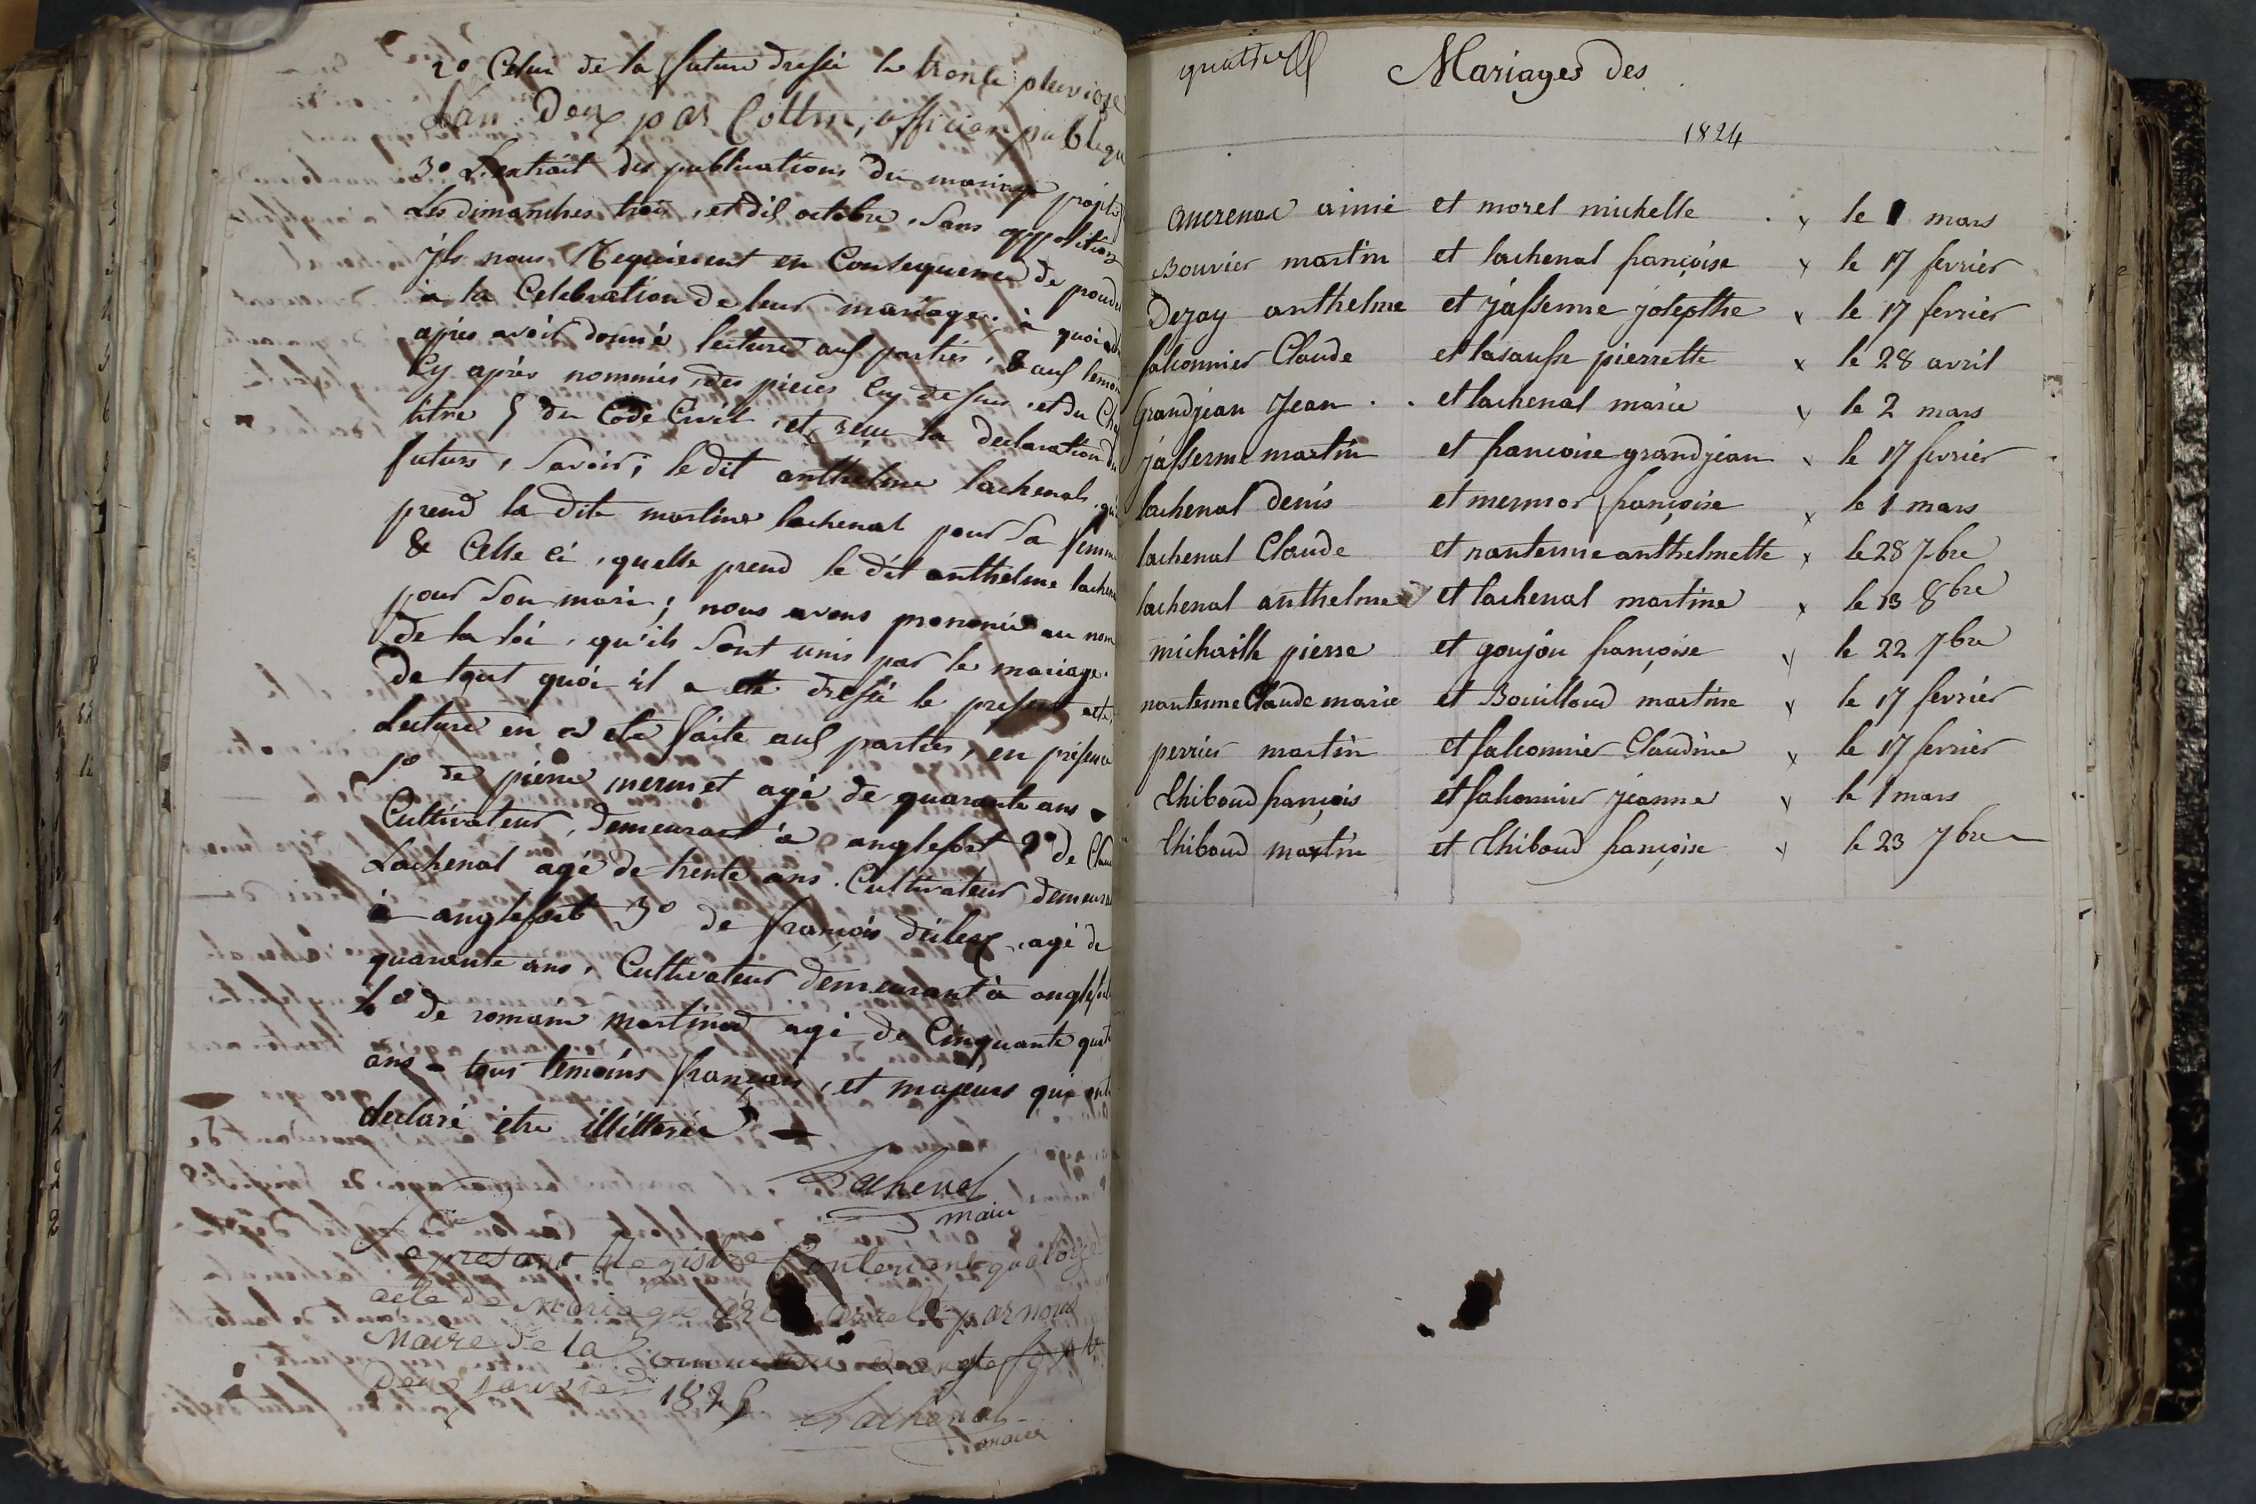 2º Celui de la future dressé le trente pluviose
Lan Deux par Cottin, officier publique
3º L'extrait des publications du mariage projeté
Les dimanches trois, et dix octobre, Sans opposition
ils nous Requièrent en Consequence de
à la Celebration de leur mariage. à quoi
après avoir donné lecture aux parties, & aux
Cy après nommés, des pieces Cy dessus, et du
titre 5 du Code Civil, et reçu la declaration
futurs, Savoir; le dit anthelme lachenal, qu'il
prend la dite martine lachenal pour Sa femme
& Celle ci, quelle prend le dit anthelme
pour Son mari; nous avons prononcé au nom
De la loi, qu'ils Sont unis par le mariage.
De tout quoi il a eté dressé le present acte,
Lecture en a eté faite aux parties, en presence
1º de pierre mermet agé de quarante ans
Cultivateur, demeurant à anglefort 2º de
Lachenal agé de trente ans. Cultivateur
à anglefort 3º de françois agé de
quarante ans, Cultivateur demeurant à
4º de romain martinod agé de Cinquante
ans tous temoins français, et majeurs qui ont
declaré être illitterés
Lachenal
maire
Le present Registre Contenient quatorze
acte de mariage arrelé par nous
Maire de la Commune
Deux janvier
Lachenal
maire
Mariages des
1824
aimé et morel michelle . x le 1 mars
Bouvier martin et lachenal françoise x le 17 fevrier
Dezay anthelme et jasserme josepthe x le 17 fevrier
falconnier Claude et lasausse pierrette x le 28 avril
Grandjean Jean . . et lachenal marie x le 2 mars
jasserme martin et francoise grandjean x le 17 fevrier
lachenal denis et françoise x le 1 mars
lachenal Claude et nanterme anthelmette x le 28 7bre
lachenal anthelme et lachenal martine x le 13 8bre
michaille pierre et goujon françoise x le 22 7bre
nanterme Claude marie et Bouilloud martine x le 17 fevrier
perrier martin et falconnier Claudine x le 17 fevrier
thiboud françois et falconnier jeanne x le 1 mars
thiboud martin et thiboud françoise x le 23 7bre